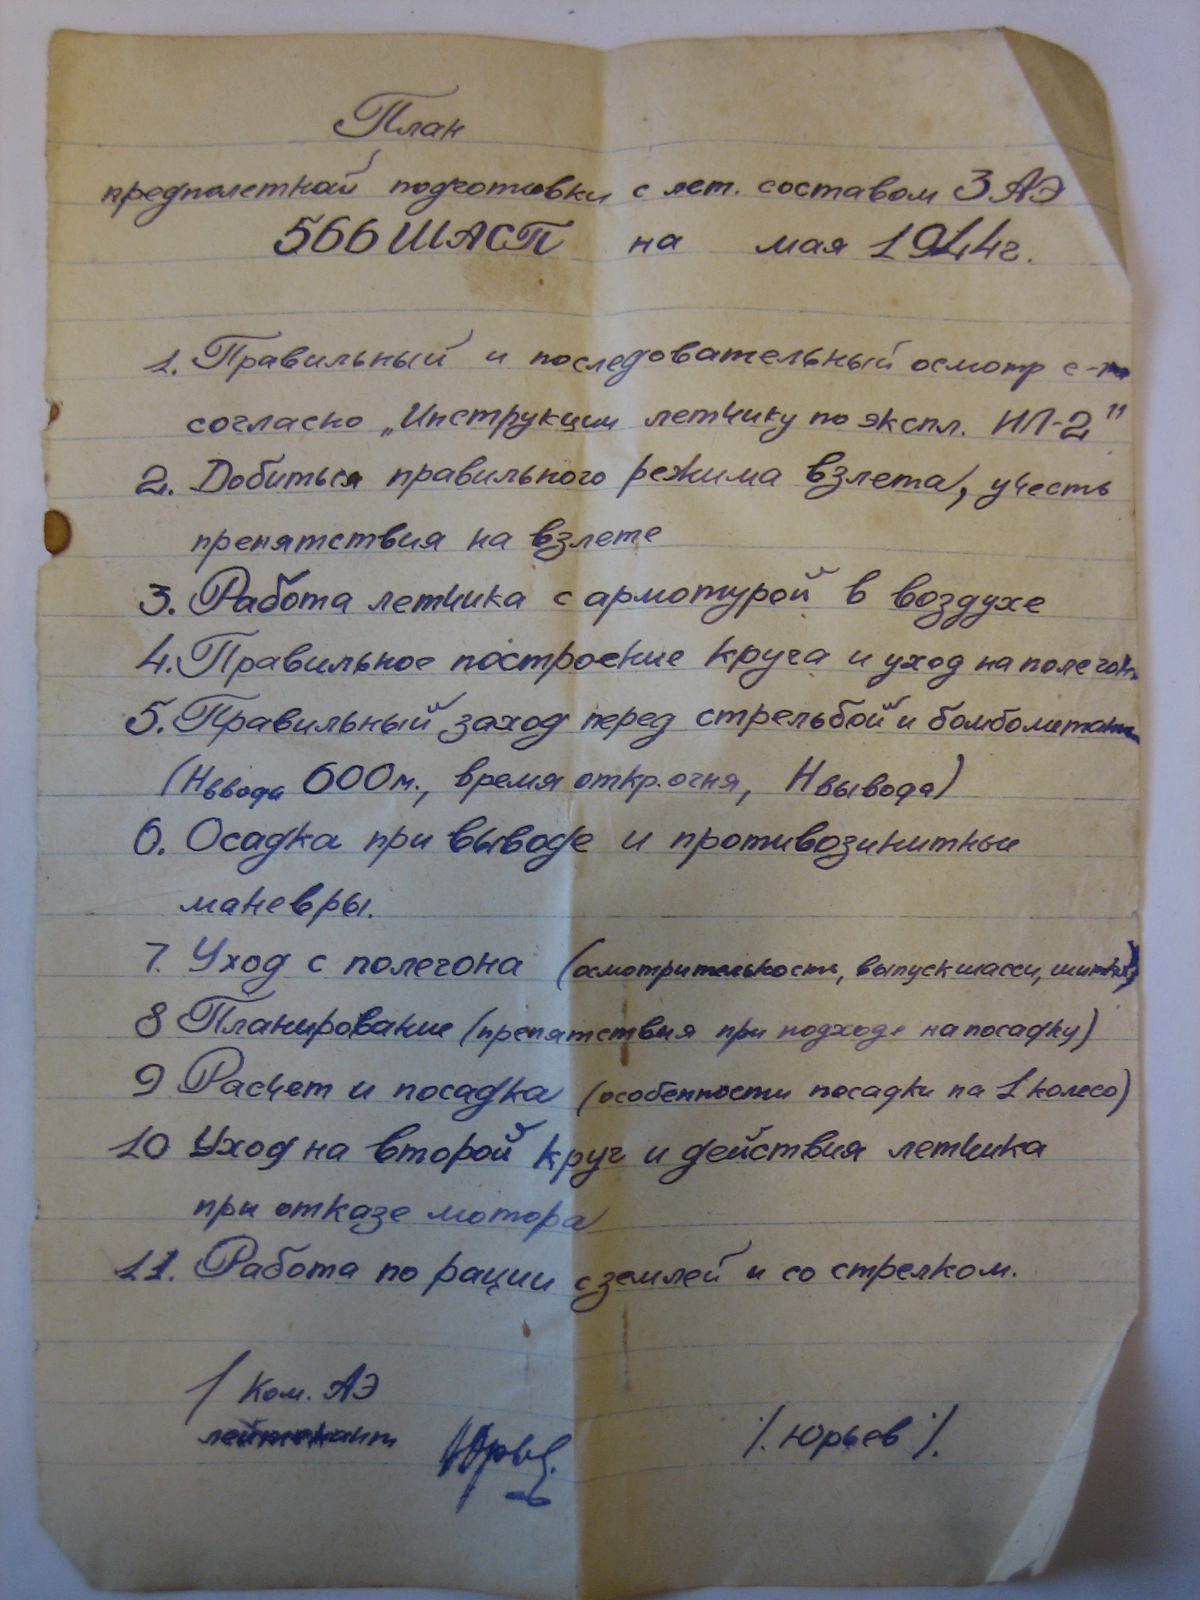 План
предполетной подготовки с лет. составом 3 АЭ
566 ШАСП на мая 1944г.
1. Правильный и последовательный осмотр с-та
согласно „Инструкции летчику по экспл. ИЛ-2"
2. Добиться правильного режима взлета, учесть
препятствия на взлете
3. Работа летчика с армотурой в воздухе
4. Правильное построение круга и уход на полегон
5. Правильный заход перед стрельбой и бомбометан
(Н ввода 600м., время откр. огня, Н вывода)
6. Осадка при выводе и противозинитные
маневры.
7. Уход с полегона (осмотрительность, выпуск шасси, щитков)
8 Планирование (препятствия при подходе на посадку)
9 Расчет и посадка (особенности посадки на 1 колесо)
10 Уход на второй круг и действия летчика
при отказе мотора
11. Работа по рации с землей и со стрелком.
/ Ком. АЭ
лейтенант Юрьев /. Юрьев /.